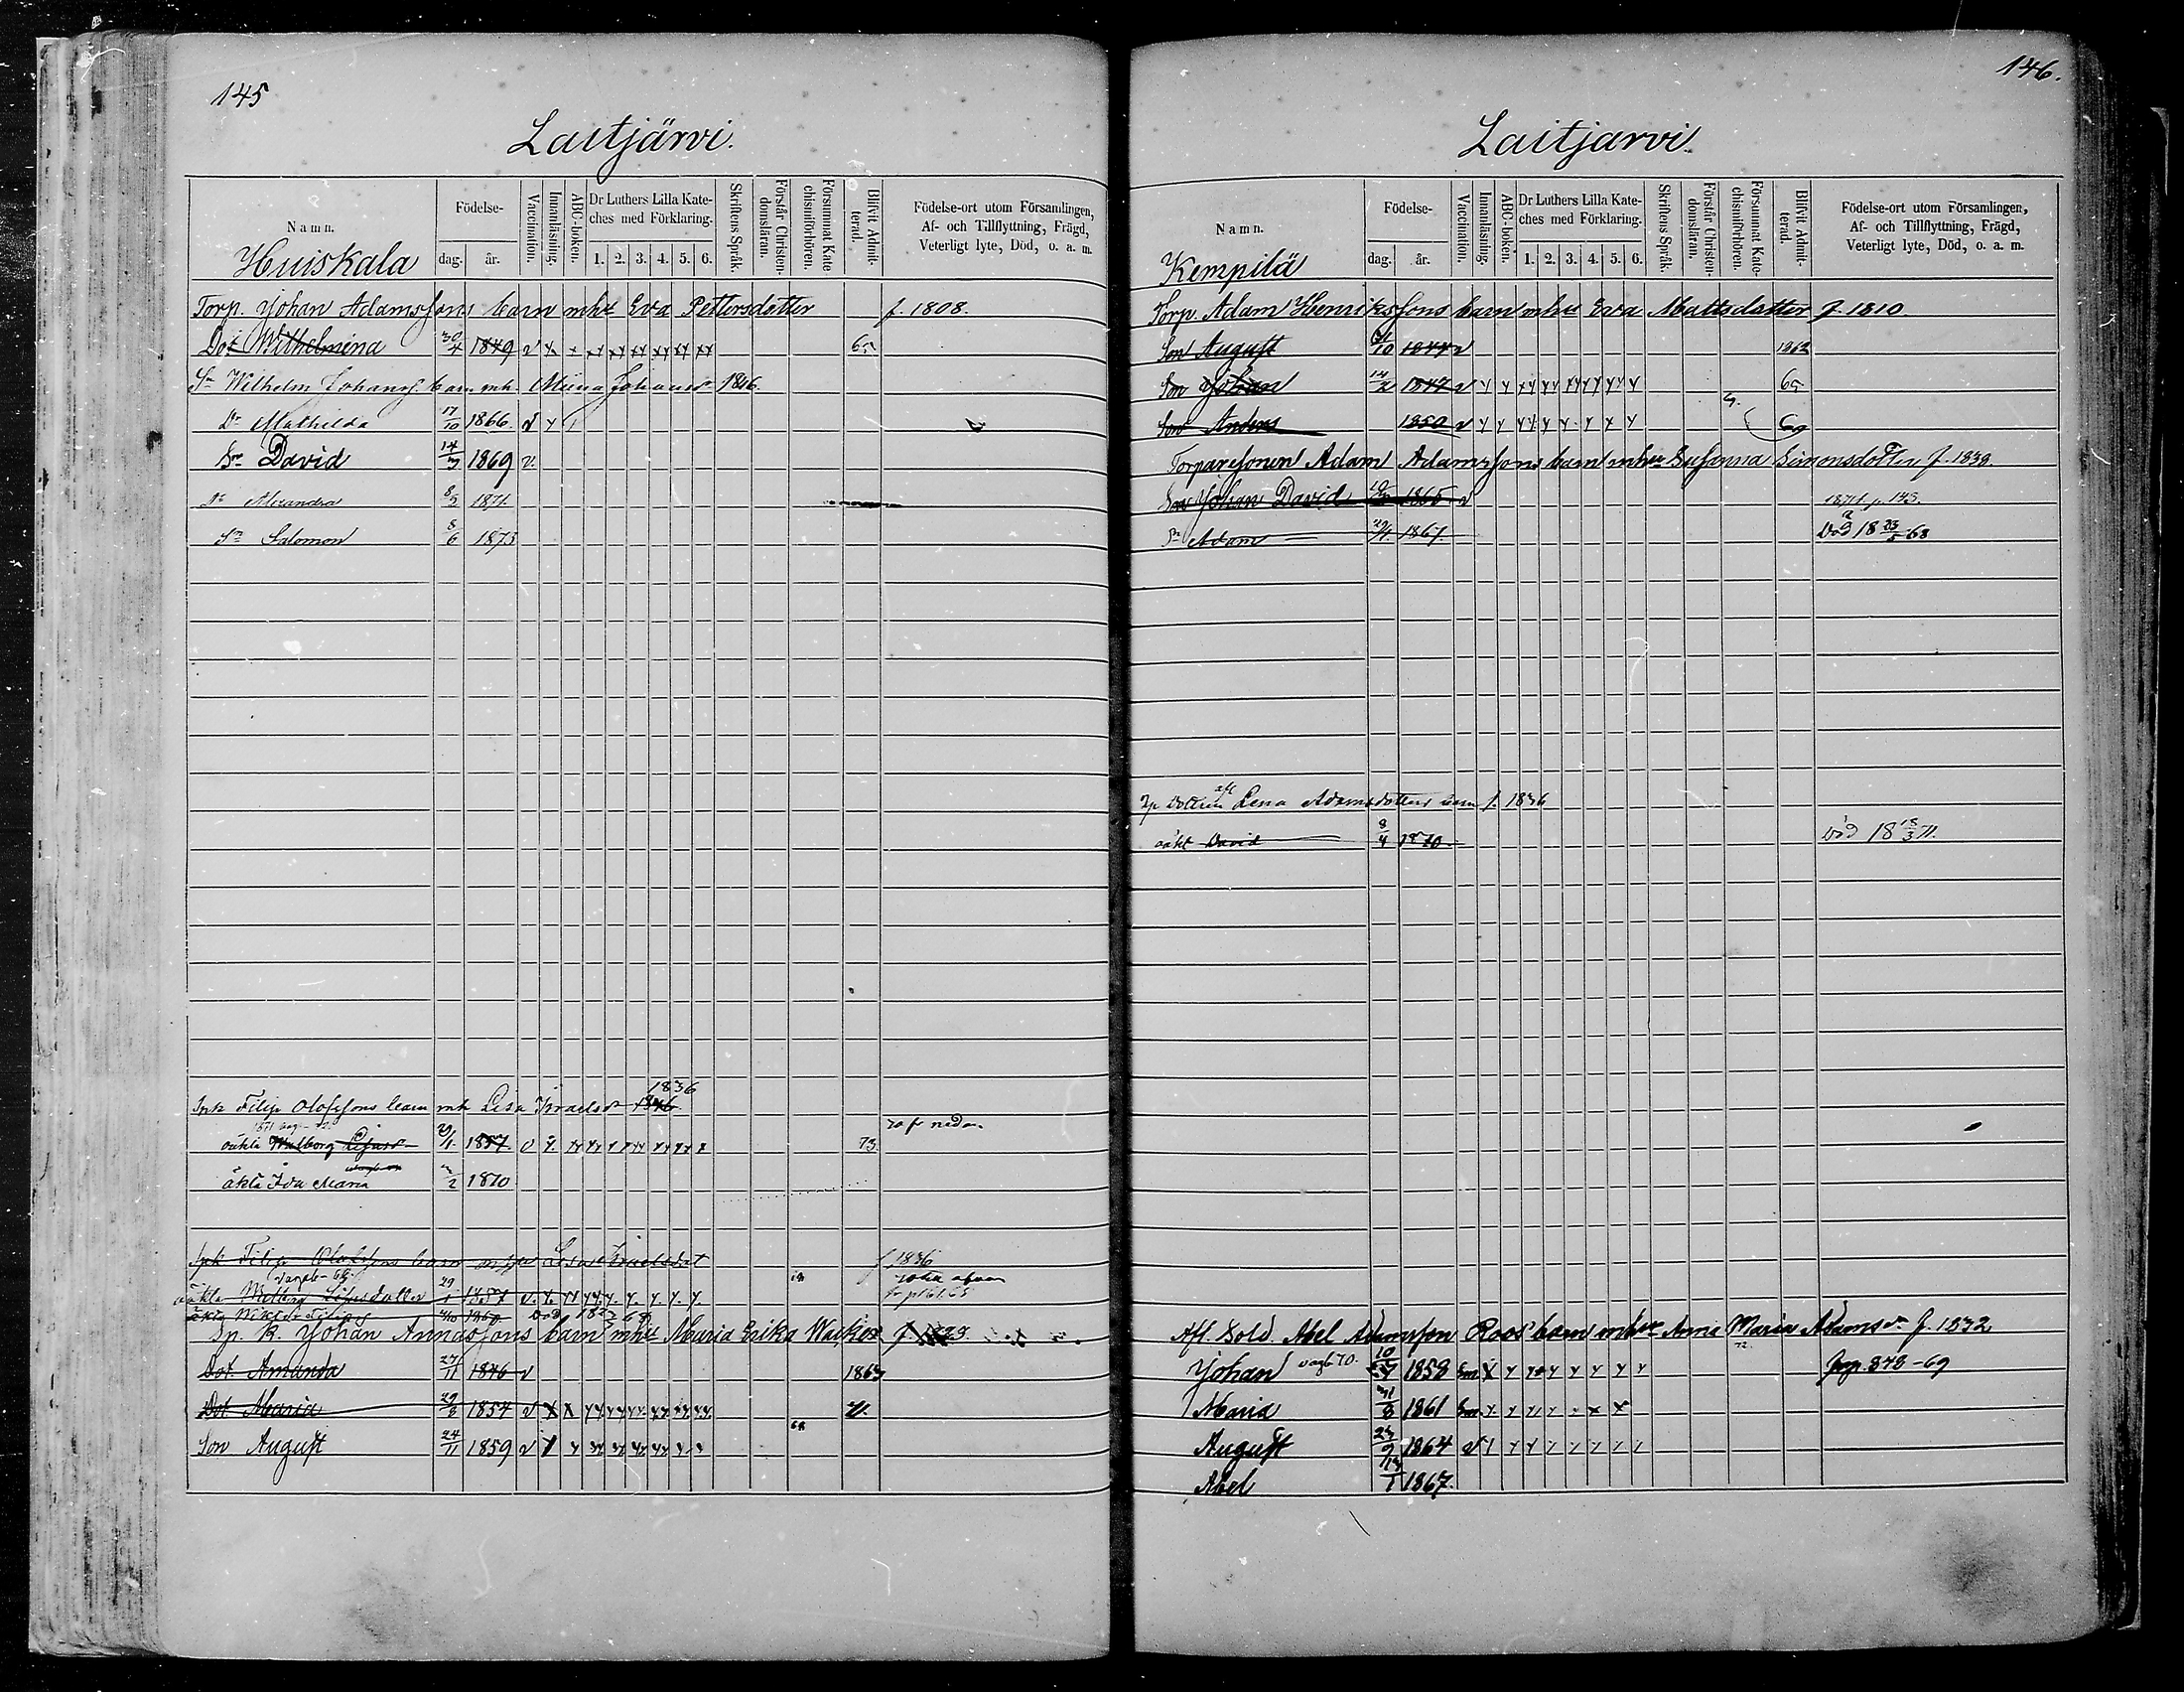 145
Laitjärvi.
Namn.
Födelse-
dag.
år.
Vaccination.
Innanläsning.
ABC-boken.
Dr Luthers Lilla Kate-
ches med Förklaring.
1. 2. 3. 4. 5. 6.
Skriftens Språk.
Förstår Christen-
domsläran.
Försummat Kate
chismiförhören.
Blifvit Admit-
terad.
Födelse-ort utom Församlingen,
Af- och Tillflyttning, Frägd,
Veterligt lyte, Död, o. a. m.
Huiskala
Torp. Johan Adamssons barn mhu Eva Pettersdotter f. 1808.
Dot Wilhelmina 30/4 1849 v 65
Sn Wilhelm Johanss. barn mh. Miina Johansdr 1846.
Dr Mathilda 17/10 1866. v
Sn David 14/7 1869 v.
Dr Alexandra 8/2 1871.
Sn Salomon 8/6 1873
1836
Filip Olofssons barn mh Lisa Israelsdr 1846
oäkta Walborg Lisasdr 29/1. 1857. v 73
äkta Ida Maria 2/2 1870
Filip Olofssons barn Lisa Israelsdot f 1836
oäkta Walborg Lisasdotter 29/1 1857 v.
äkta Wiktor Filips 1860
Sp. k. Johan Annassons barn mhu Maria Erika f.
Dot. Amanda 27/11 1846 v 1863
Dot Maria 29/8 1854 v 71.
Son August 24/11 1859 v
146.
Laitjarvi.
Namn.
Födelse-
dag.
år.
Vaccination.
Innanläsning.
ABC-boken.
Dr Luthers Lilla Kate-
ches med Förklaring.
1. 2. 3. 4. 5. 6.
Skriftens Språk.
Förstår Christen-
domsläran.
Försummat Kate-
chismiförhören.
Blifvit Admit-
terad.
Födelse-ort utom Församlingen,
Af- och Tillflyttning, Frägd,
Veterligt lyte, Död, o. a. m.
Kempilä
Torp. Adam Henrikssons barn mhu Eva Mattsdotter f. 1810.
Son August 31/10 1844 v 1862
Son Johan 14/2 1847 v 65
Son Anders 1850 v 69
Torparesonen Adam Adamssons barn mhu Susanna Simonsdotter f. 1838.
Son Johan David 1865 v 1871 p. 143.
Sn Adam 29/1. 1867. Död 18 23/5 68
Lena Adamsdotters barn f. 1836
oäkt David 8/4 1870 Död 18 18/3 71.
Aff. Sold. Abel Adamsson Roos barn mhu Anna Maria Adamsdr f. 1832
Johan 10/7 1858
Maria 31/8 1861
August 23/9 1864 v
Abel 13/1 1867.